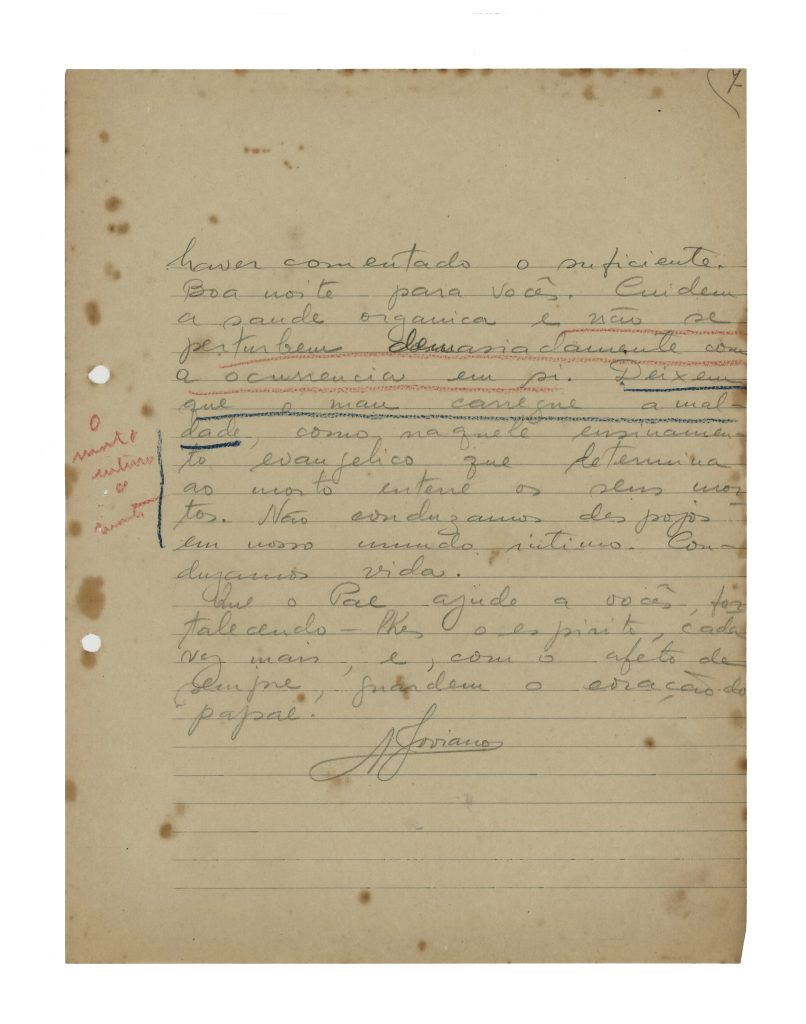 7
haver comentado o suficiente.
Boa noite para vocês. Cuidem
a saude organica e não se
perturbem demasiadamente com
a ocurrencia em si. Deixem
que o mau carregue a mal-
dade, como naquele ensinamen-
to evangelico que determina
ao morto enterre os seus mor
tos. Não conduzamos despojos
em nosso mundo intimo. Con-
duzamos vida.
Que o Pae ajude a vocês, for
talecendo-lhes o espirito, cada
vez mais, e, com o afeto de
sempre, guardem o coração do
papae.
A Joviano
O
morto
enterre
o
morto